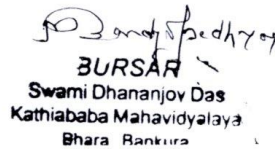 BURSAR
Swami Dhananjoy Das
Kathiababa Mahavidyalaya
Bhara Bankura